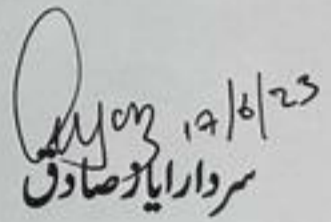 Ayaz 17/6/23
سردار ایاز صادق